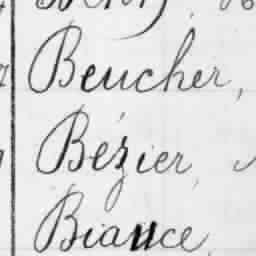 Beucher,
Bézier,
Biance,